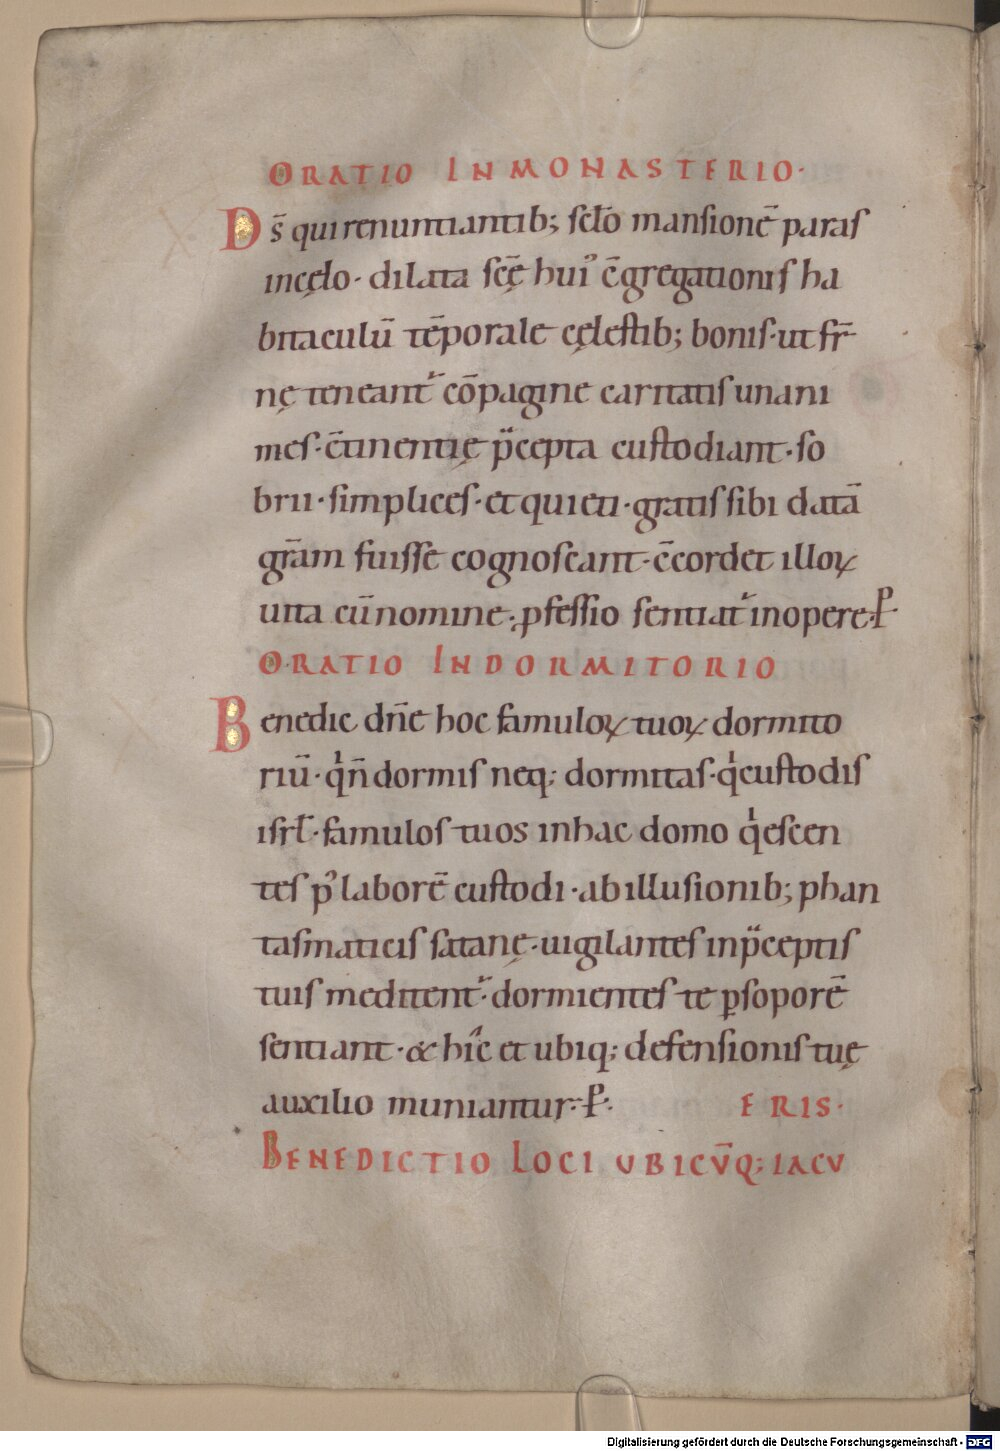 ORATIO IN MONASTERIO·
Ds̄ qui renuntiantib; sclo̅ mansionē paras
in cęlo· dilata scę̄ hui᾽ c̄gregationis ha
bitaculū tēporale cęlestib; bonis· ut fr̄
nę teneant᷑ cōpagine caritatis unani
mes· c̄tinentię p̈cepta custodiant· so
brii· simplices· et quieti· gratis sibi datā
gr̄am fuisse cognoscant· c̄cordet illoꝝ
uita cū nomine· ꝓfessio sentiat᷑ in opere· ꝑ·
ORATIO IN DORMITORIO
Benedic dn̄e hoc famuloꝝ tuoꝝ dormito
riū· qͥ n̄ dormis neq; dormitas· qͥ custodis
isrl̄· famulos tuos in hac domo qͥescen
tes p᾽ laborē custodi· ab illusionib; phan
tasmaticis satanę· uigilantes in p̈ceptis
tuis meditent᷑· dormientes te ꝑ soporē
sentiant· & hic et ubiq; defensionis tuę
auxilio muniantur· ꝑ·
ERIS·
BENEDICTIO LOCI UBICV̄Q; IACV
Digitalisierung gefördert durch die Deutsche Forschungsgemeinschaft - DFG